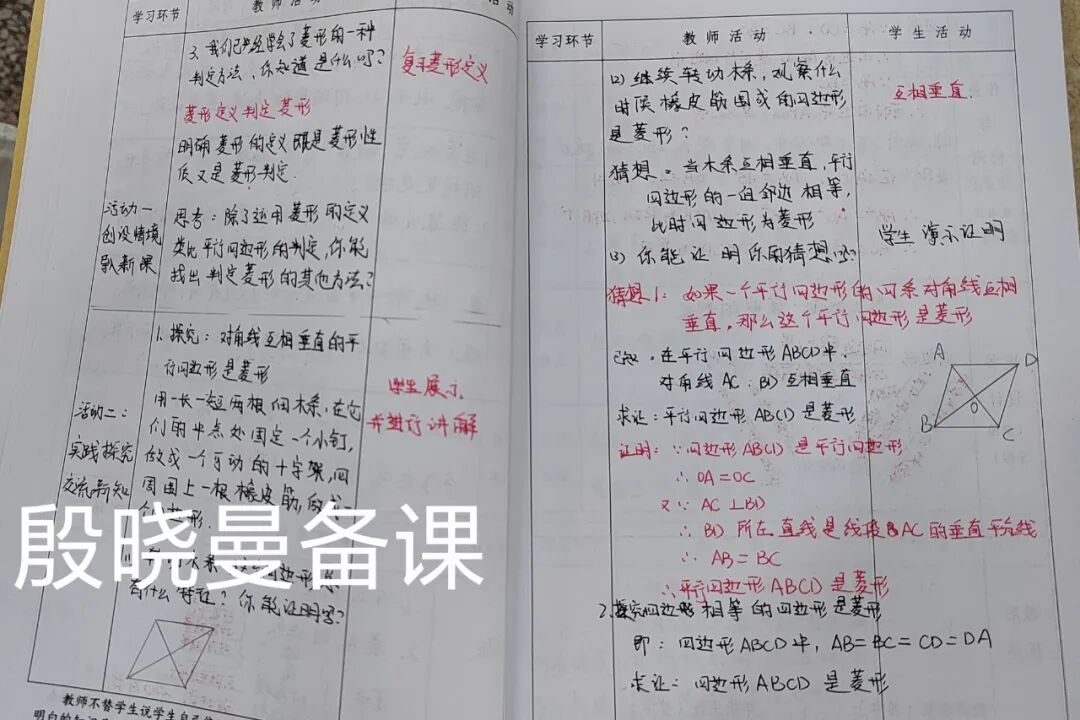 学习环节 教师活动 活动
3、我们已经学会了菱形的一种
判定方法，你知道是什么吗？
复习菱形定义
菱形定义判定菱形
明确菱形的定义既是菱形性
质又是菱形判定.
活动一
创设情境
导入新课
思考：除了运用菱形的定义
类比平行四边形的判定，你能
找出判定菱形的其他方法？
1.探究：对角线互相垂直的平
行四边形是菱形
学生展示
并进行讲解
活动二：
实践探究
交流新知
用一长一短两根细木条，在它
们的中点处固定一个小钉，
做成一个可动的十字架，四
周围上一根橡皮筋，做成一
个四边形.
有什么特征？你能证明吗？
教师不替学生说学生自己
殷晓曼备课
学习环节 教师活动 学生活动
(2)继续转动木条，观察什么
时候橡皮筋围成的四边形
是菱形？
互相垂直.
猜想。当木条互相垂直，平行
四边形的一组邻边相等，
此时四边形为菱形
学生演示证明
(3)你能证明你的猜想吗？
猜想1：如果一个平行四边形的四条对角线互相
垂直，那么这个平行四边形是菱形
已知.在平行四边形ABCD中.
对角线AC.BD互相垂直
求证：平行四边形ABCD是菱形
A D
O
B C
证明：∵四边形ABCD是平行四边形
∴OA=OC
又∵AC⊥BD
∴BD所在直线是线段AC的垂直平分线
∴AB=BC
∴平行四边形ABCD是菱形
2.探究四边相等的四边形是菱形
即：四边形ABCD中，AB=BC=CD=DA
求证：四边形ABCD是菱形